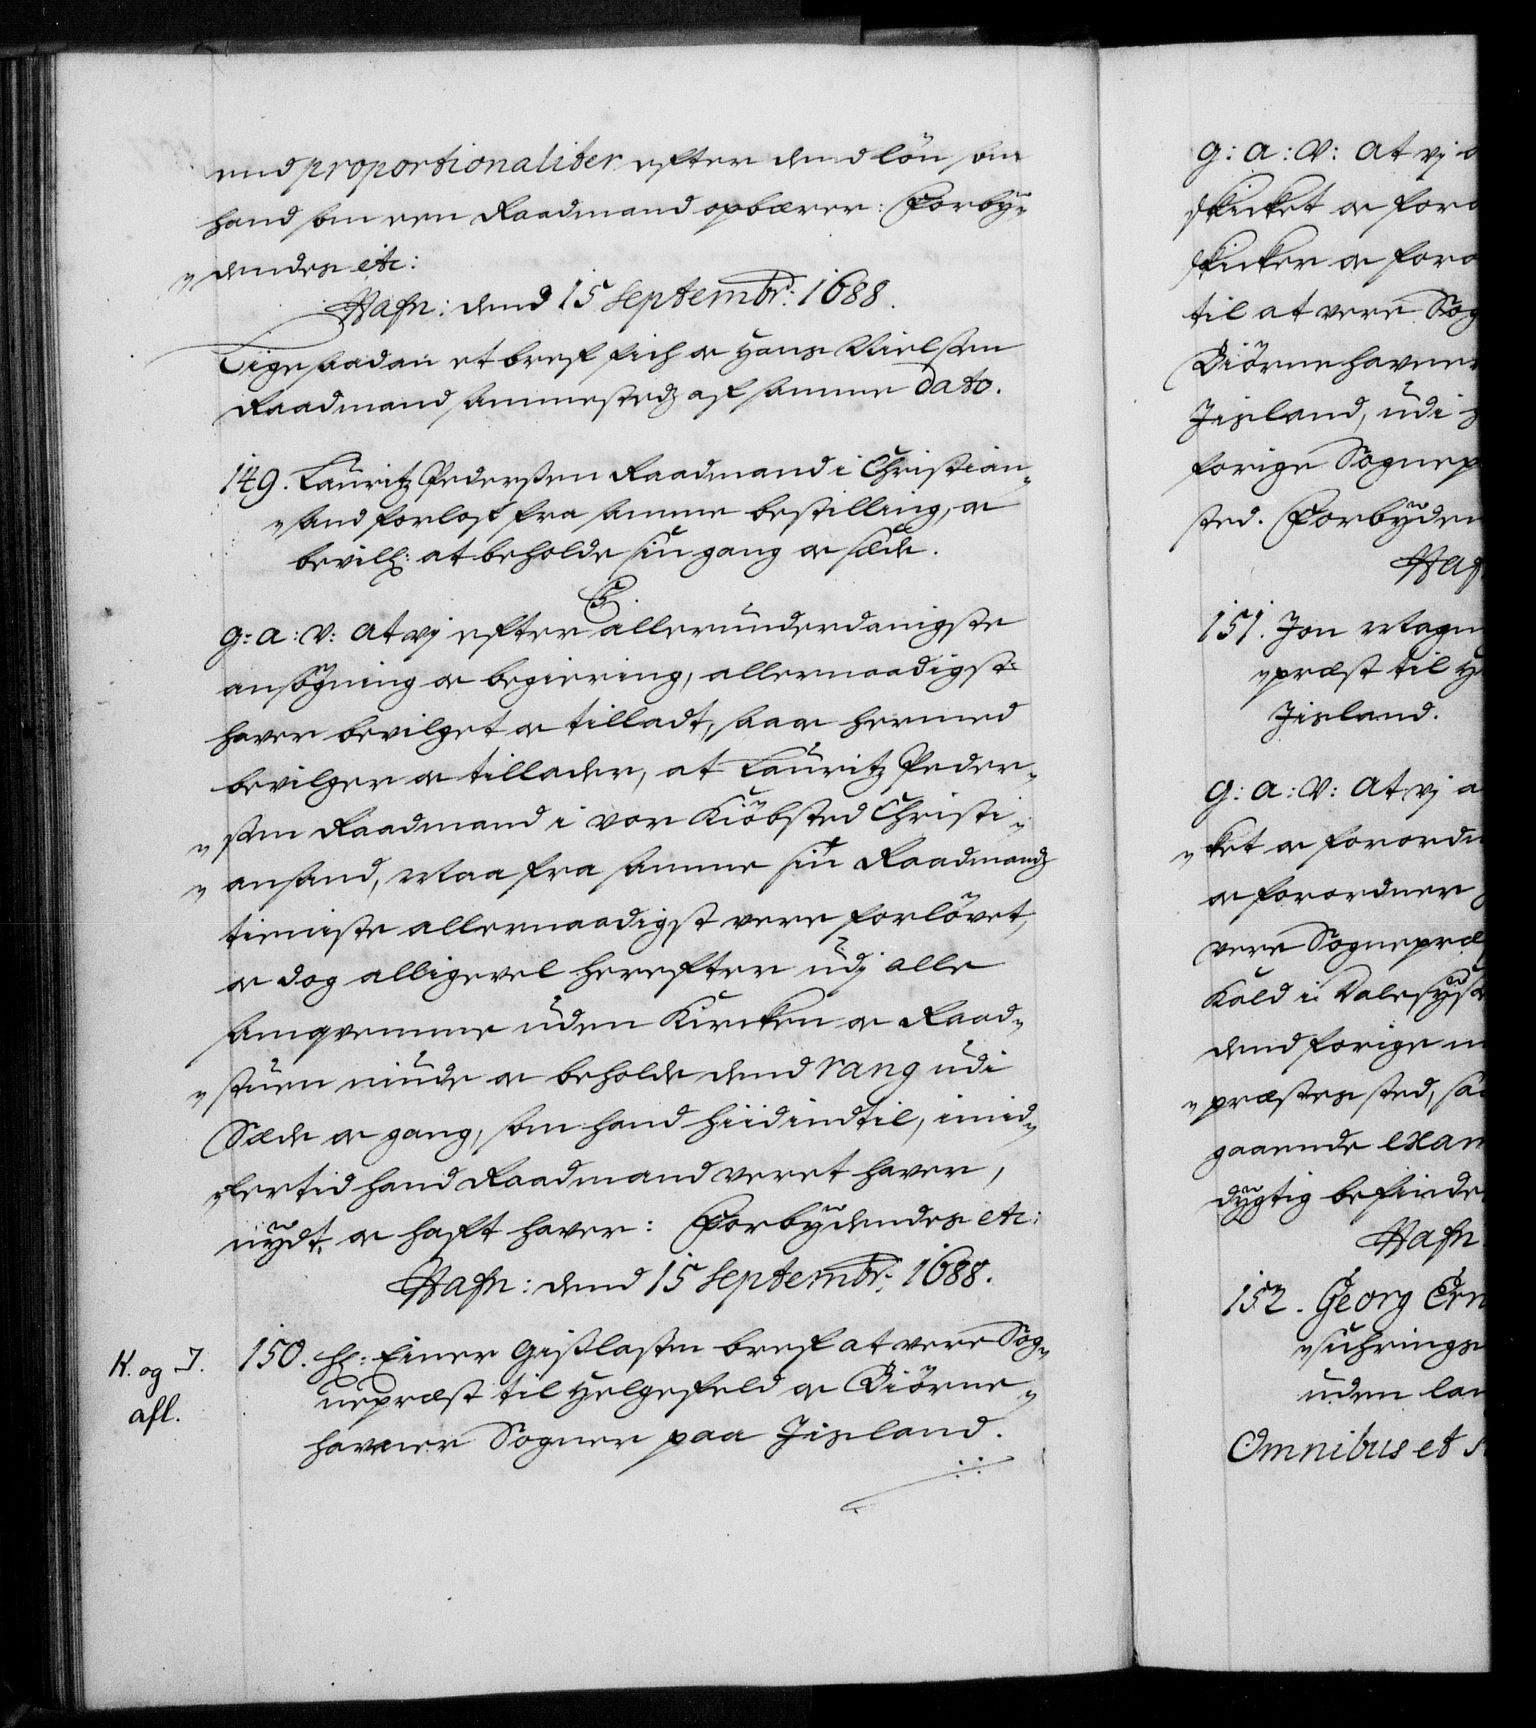 end proportionaliter efter dend lön som
hand som een Raadmand opbærer: Forby¬
„dendes etc:
Hafn: dend 15 Septembr: 1688.
Lige saadan et bref fich oc Hans Nielsen
Raadmand sammestedz af samme dato.
149. Lauritz Pedersen Raadmand i Christian¬
„sand forlof fra samme bestilling, oc
bevilg: at beholde sin gang oc sæde.
C5
G: a: v: at vj efter allerunderdanigste
ansögning oc begiering, allernaadigst
haver bevilget oc tilladt, saa oc hermed
bevilger oc tillader, at Lauritz Peder¬
„sen Raadmand i vor Kiöbsted Christi¬
„ansand, maa fra samme sin Raadmands
tieniste allernaadigst vere forlövet,
oc dog alligevel herefter udj alle
samqvemme uden Kircken oc Raad¬
„stuen niude oc beholde dend rang udi
Sæde oc gang, som hand hiidindtil, imid¬
„lertid hand Raadmand veret haver,
nydt oc haft haver: Forbydendes etc:
Hafn: dend 15 Septembr: 1688.
K. og I.
afl.
150. Hr: Einer Gislasen bref at vere Sog¬
nepræst til Helgefeld oc Biörne¬
havner Sogner paa Jisland.
G: a: v: at vj
skicket oc foro
skicker oc foro
til at vere Sog
Biörnehavner
Jisland, udi
forige Sognep
sted. Forbyden
Haf
151. Jon Magn
„præst til H
Jisland.
G: a: v: at vj a
„ket oc forordn
oc forordner
vere Sognepræ
Kald i Dalesys
dend forige
„præstes sted, sa
gaaende exam
dygtig befinde
Hafn
152. Georg Ern
„suhrings
uden lan
Omnibus et